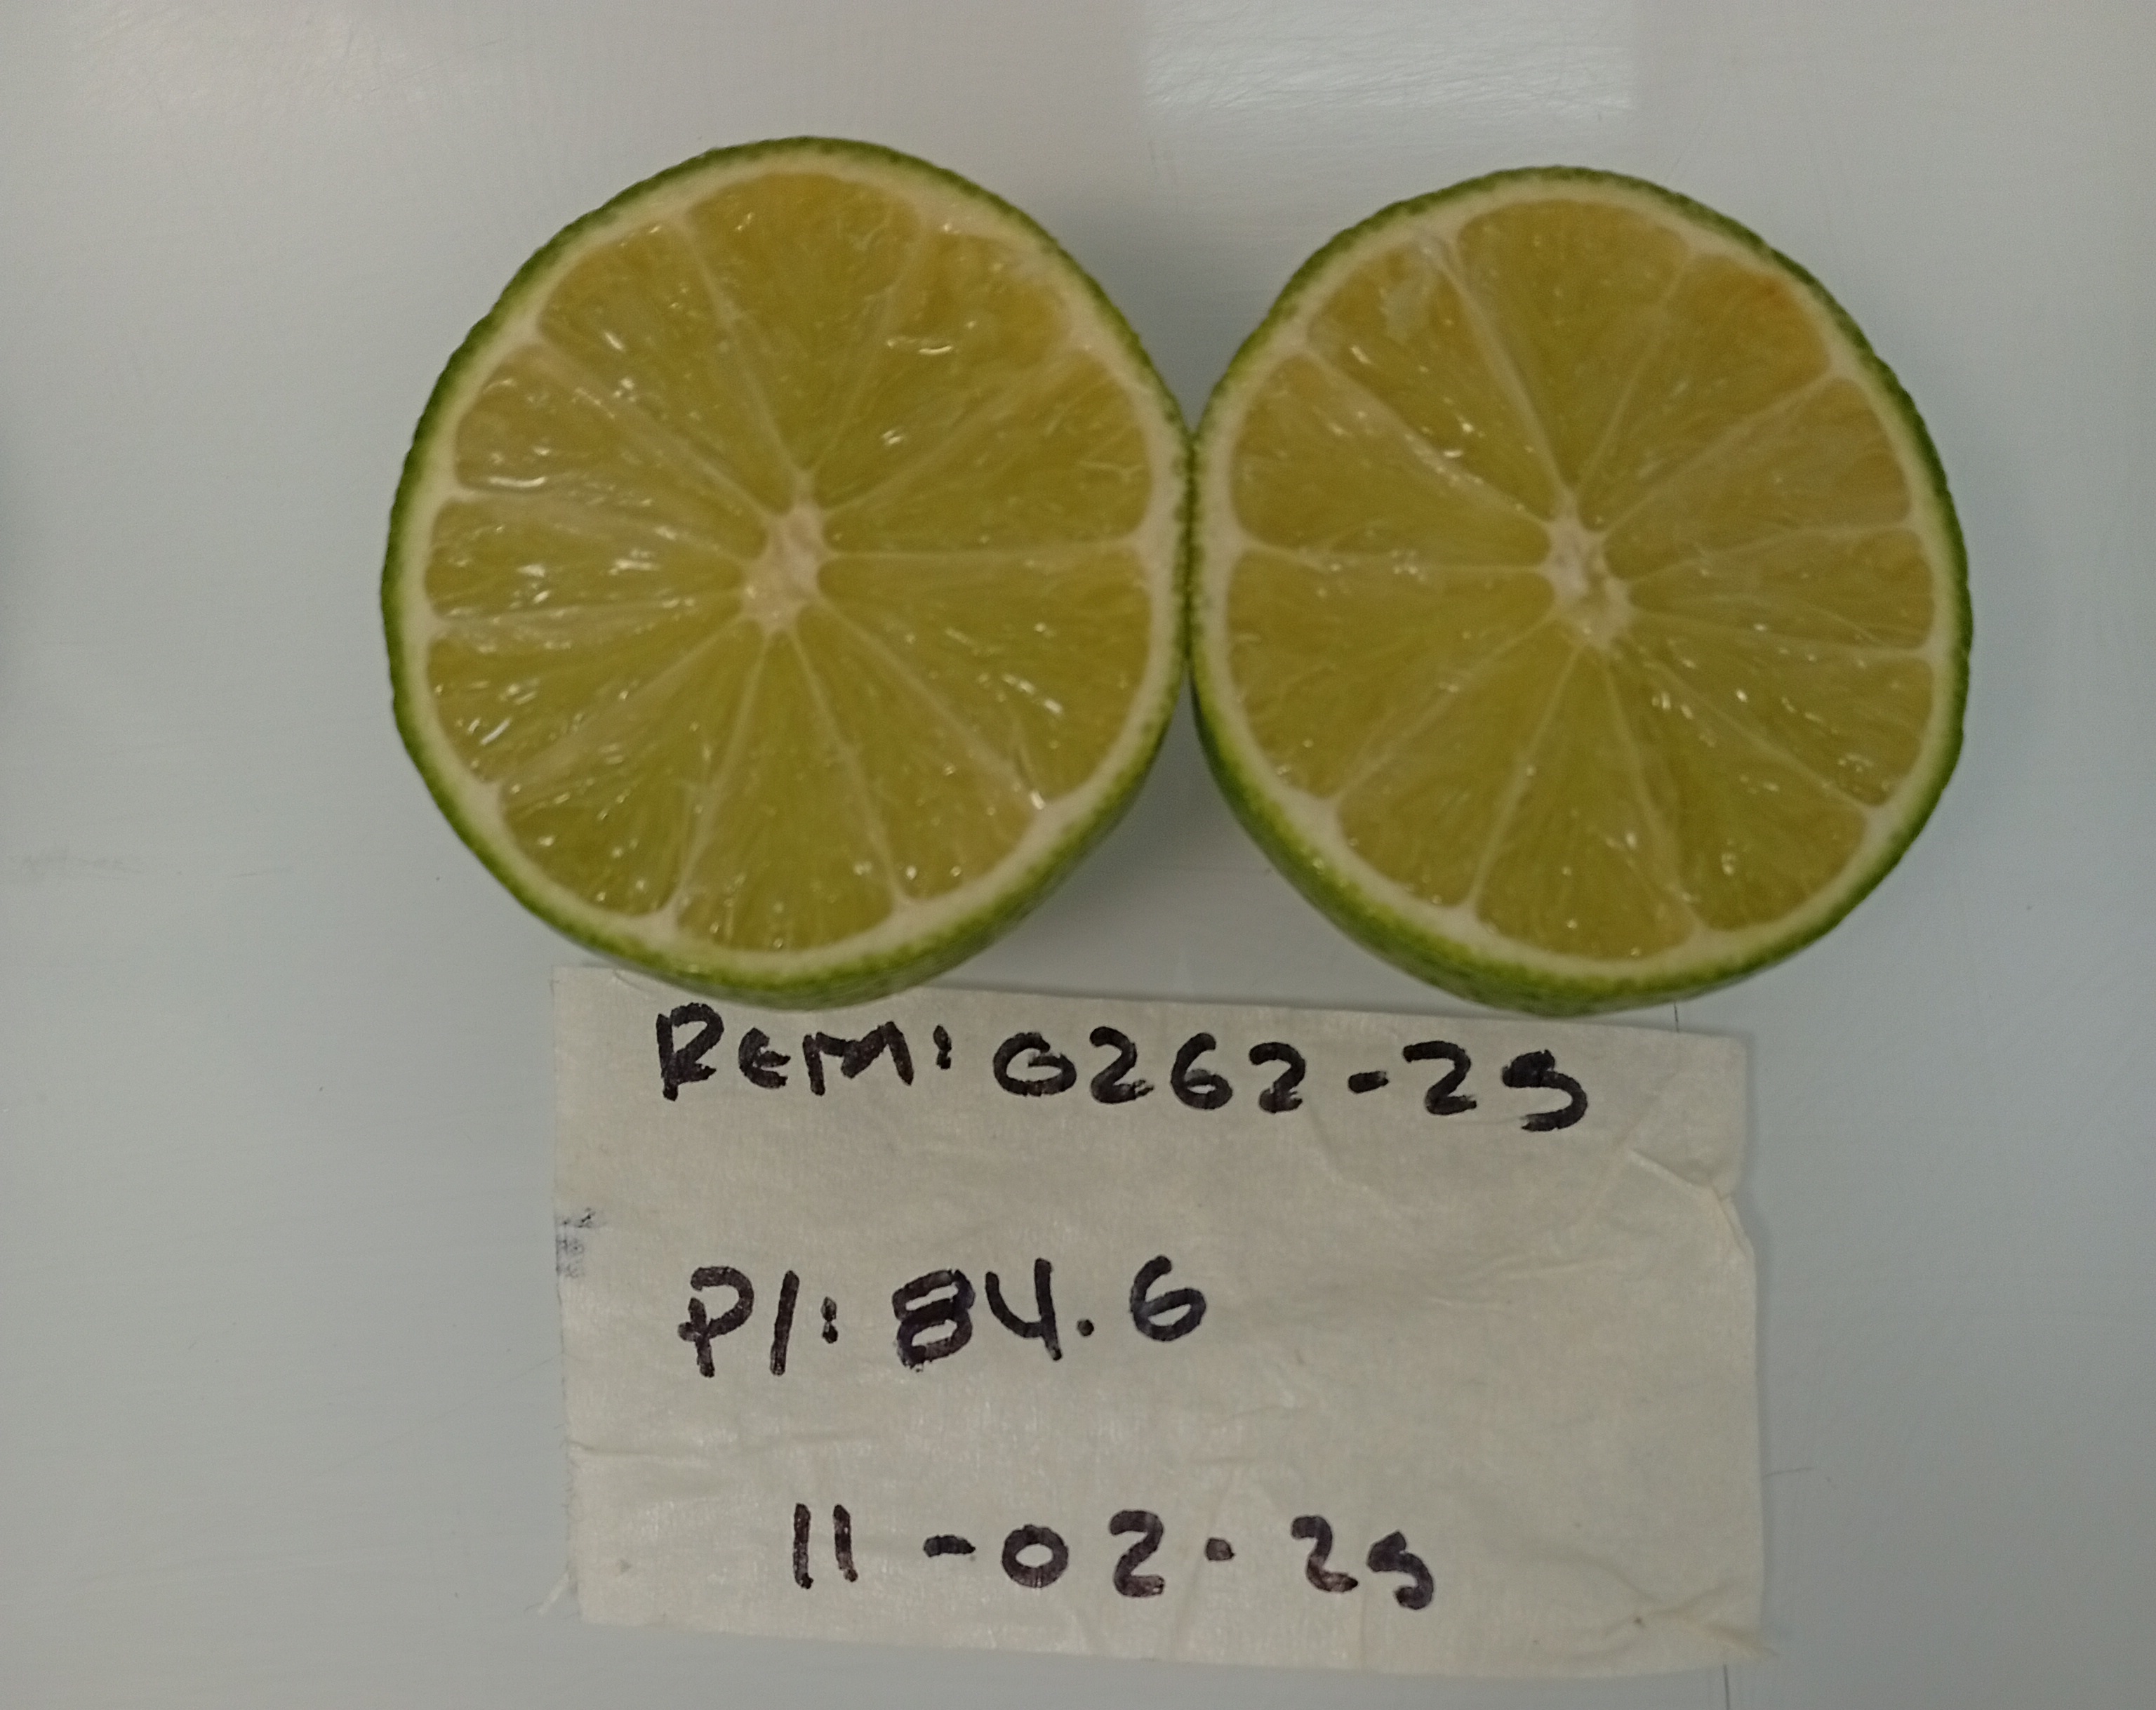 REM: 0262-25
P1: 84.6
11-02-25